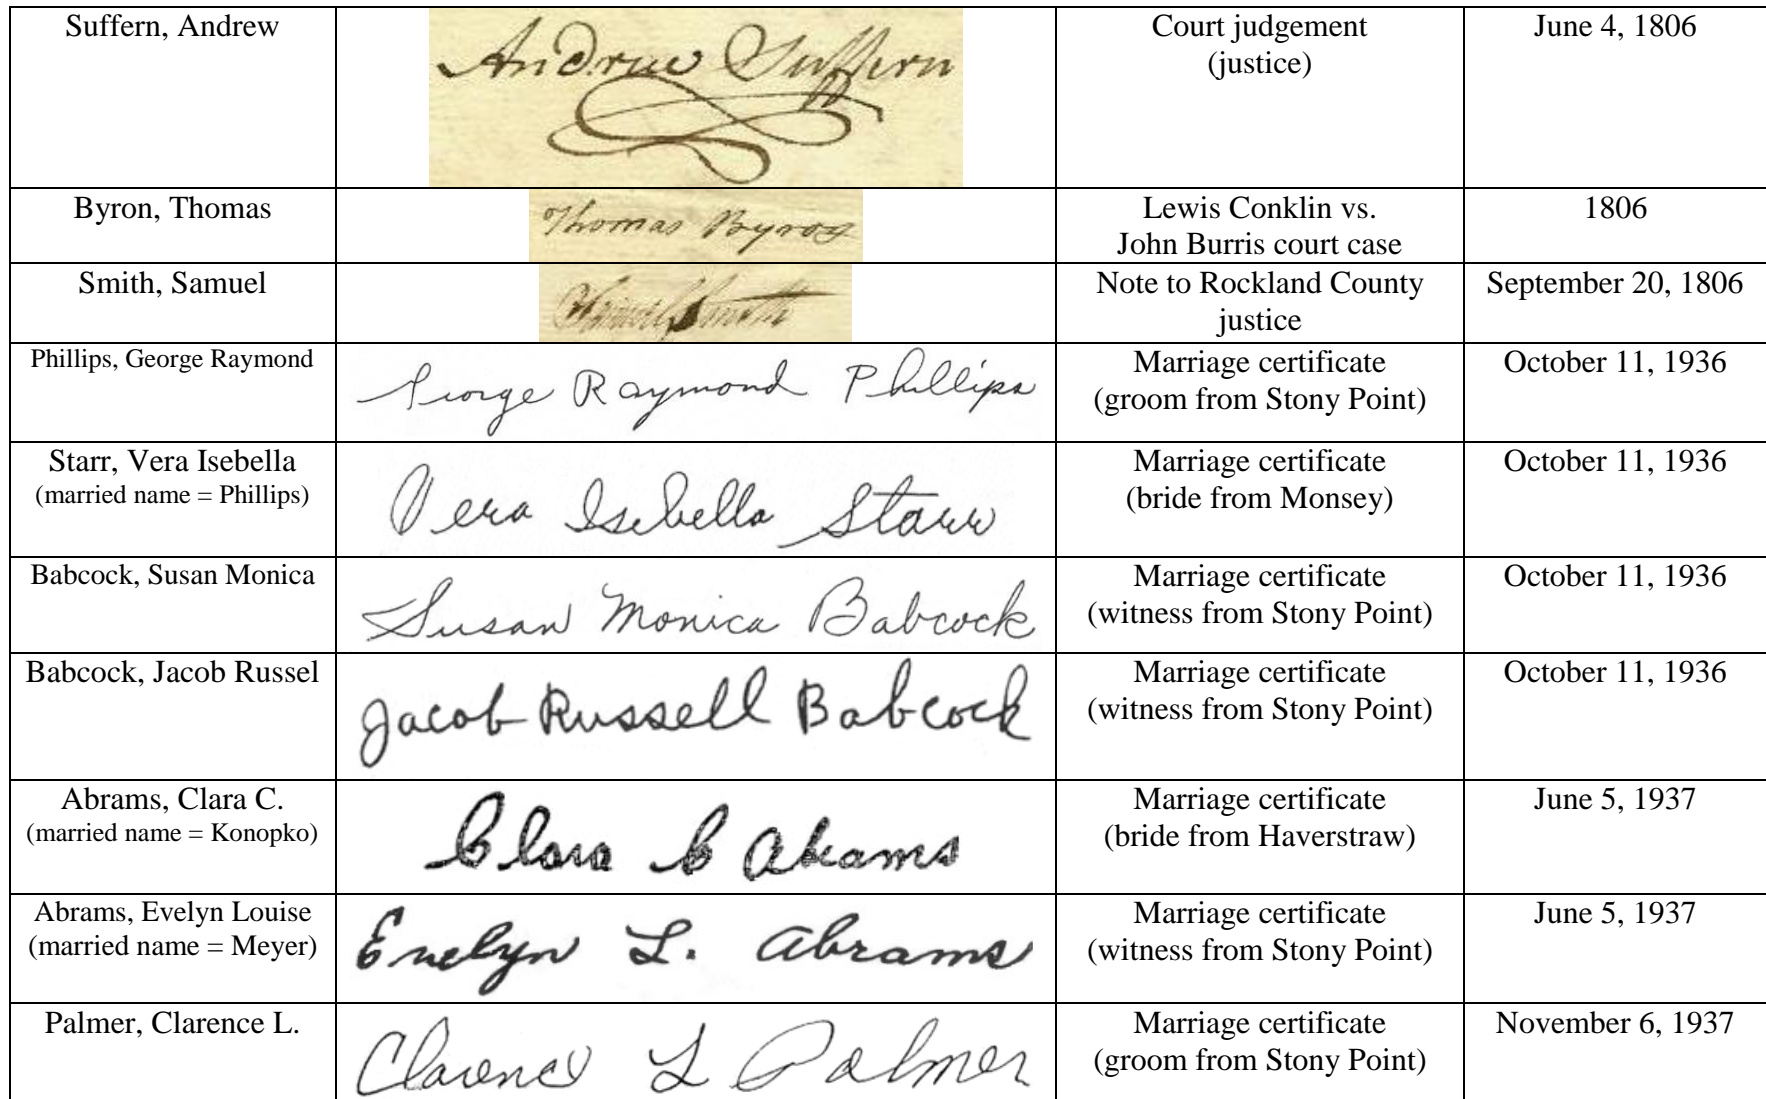 Suffern, Andrew
Andrew Suffern
Court judgement
(justice)
June 4, 1806
Byron, Thomas
Thomas Byron
Lewis Conklin vs.
John Burris court case
1806
Smith, Samuel
Samuel Smith
Note to Rockland County
justice
September 20, 1806
Phillips, George Raymond
George Raymond Phillips
Marriage certificate
(groom from Stony Point)
October 11, 1936
Starr, Vera Isebella
(married name = Phillips)
Vera Isebella Starr
Marriage certificate
(bride from Monsey)
October 11, 1936
Babcock, Susan Monica
Susan Monica Babcock
Marriage certificate
(witness from Stony Point)
October 11, 1936
Babcock, Jacob Russel
Jacob Russell Babcock
Marriage certificate
(witness from Stony Point)
October 11, 1936
Abrams, Clara C.
(married name = Konopko)
Clara C Abrams
Marriage certificate
(bride from Haverstraw)
June 5, 1937
Abrams, Evelyn Louise
(married name = Meyer)
Evelyn L. Abrams
Marriage certificate
(witness from Stony Point)
June 5, 1937
Palmer, Clarence L.
Clarence L Palmer
Marriage certificate
(groom from Stony Point)
November 6, 1937